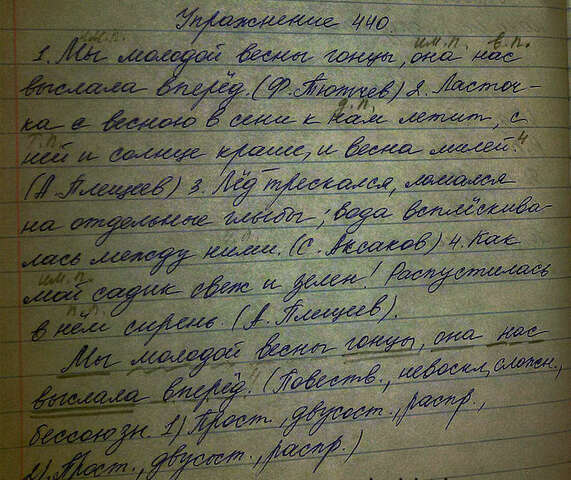 Упражнение 440.
им.п. им.п. в.п.
1. Мы молодой весны гонцы, она нас
выслала вперёд. (Ф. Тютчев) 2. Ласточ-
д.п.
ка с весною в сени к нам летит, с
т.п.
ней и солнце краше, и весна милей."
(А. Плещеев) 3. Лёд трескался, ломался
на отдельные глыбы; вода всплёскива-
лась между ними. (С. Аксаков) 4. Как
им.п.
мой садик свеж и зелен! Распустилась
п.п.
в нём сирень. (А. Плещеев).
Мы молодой весны гонцы, она нас
выслала вперёд.4 (Повеств., невоскл, сложн.,
бессоюзн. 1) Прост., двусост., распр.,
2) Прост., двусост., распр.)